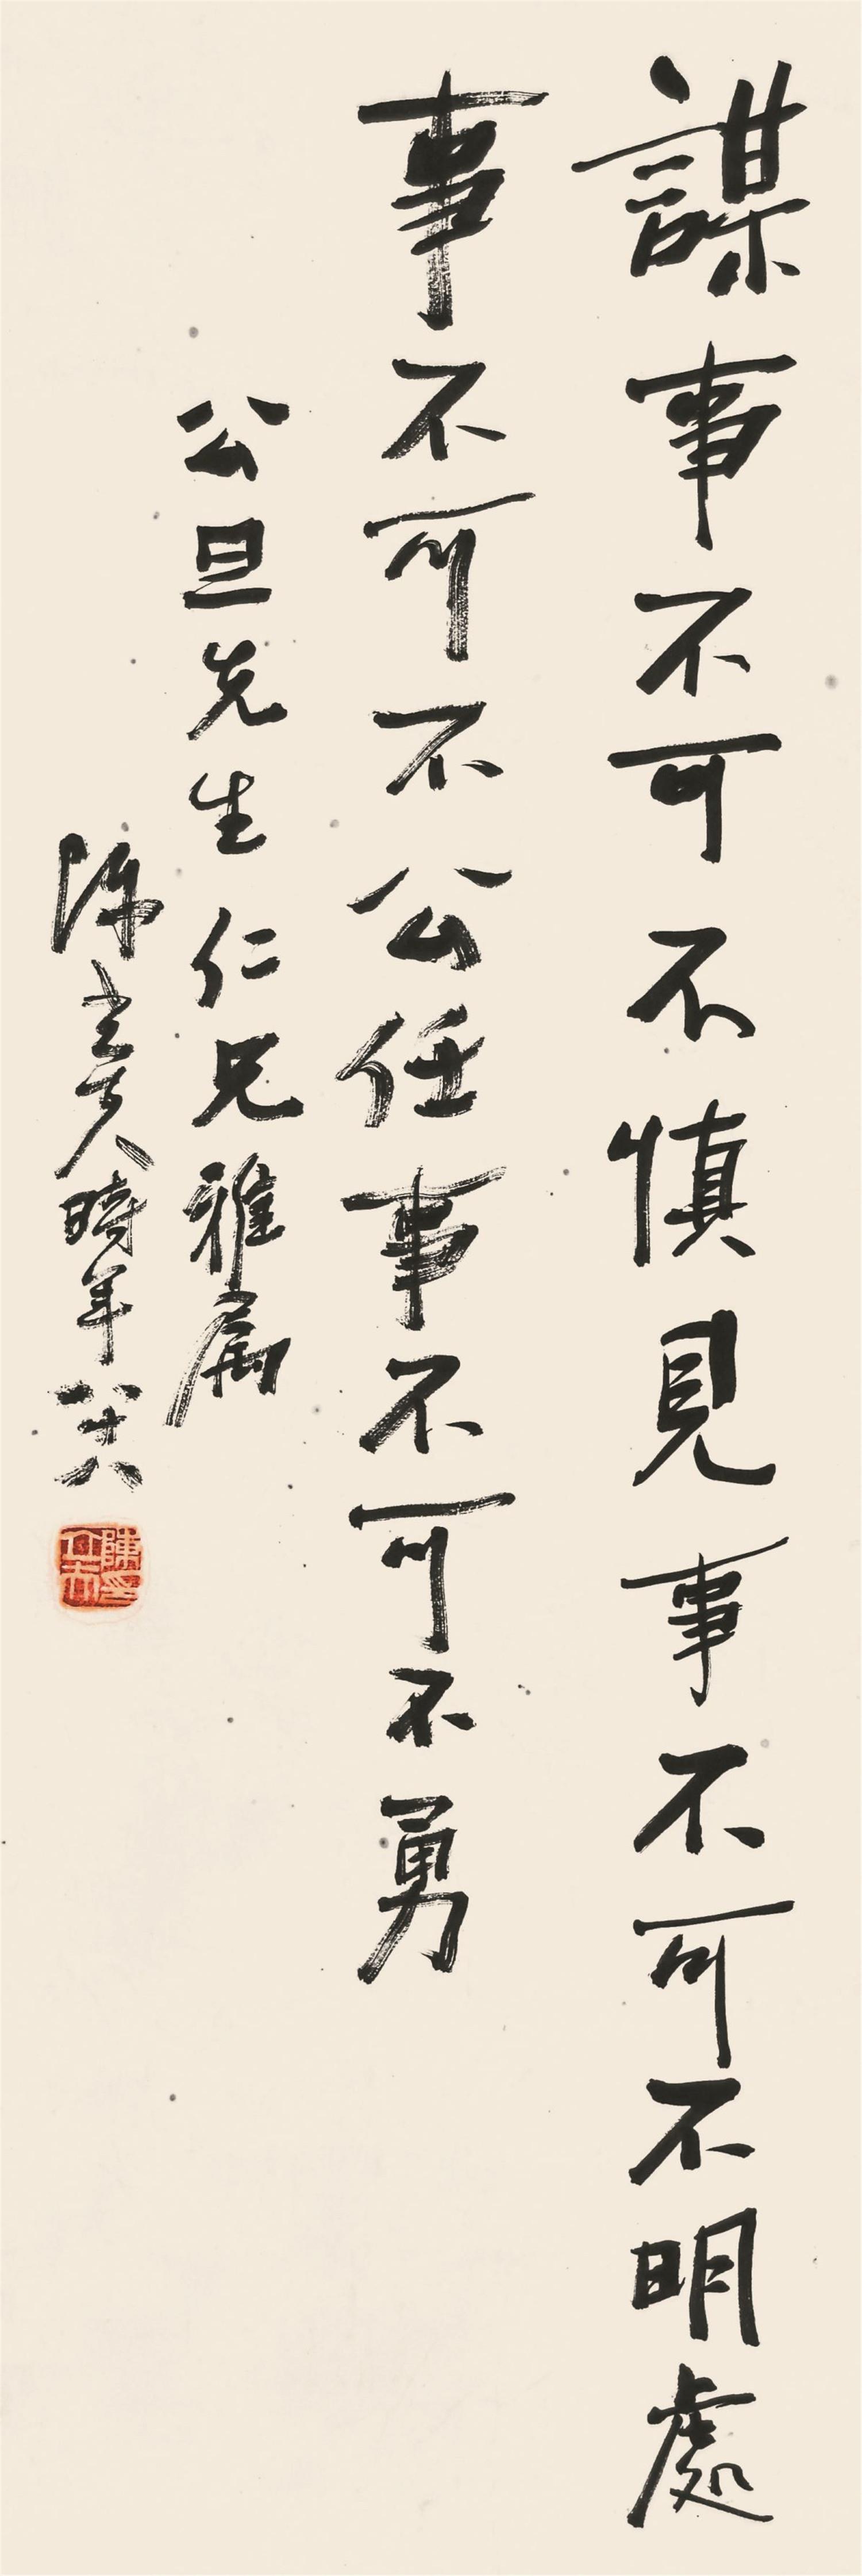 謀事不可不慎見事不可不明處
事不可不公任事不可不勇
公旦先生仁兄雅屬
陳立夫時年八十六
陳立夫印